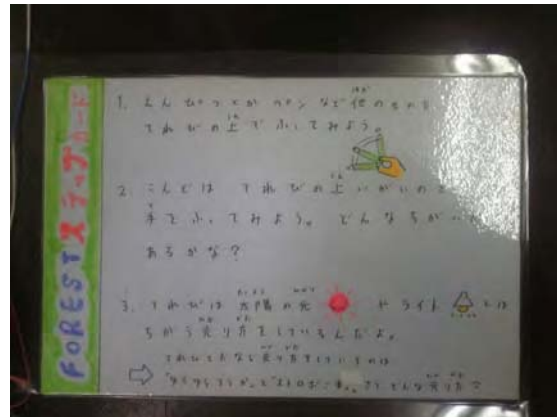 FORESTステップカード
1. えんぴつとか ペンなど他のものを
てれびの上でふってみよう。
2. こんどは てれびの上いがいの
手をふってみよう。どんなちがいが
あるかな？
3. てれびは 太陽の光 や ライト とは
ちがう光り方をしているんだよ。
てれびとおなじ光り方をしているのは